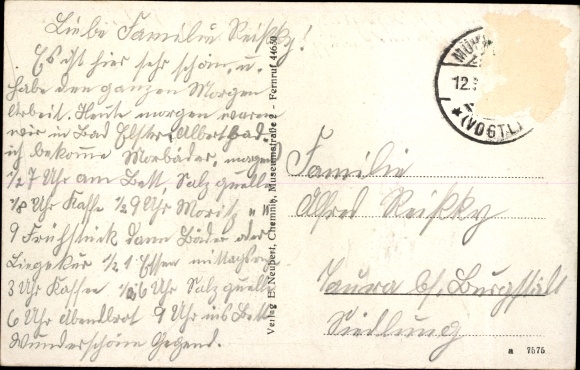 Liebe Familie Reißky!
Es ist hier sehr schön, u.
habe den ganzen Morgen
Arbeit. Heute morgen waren
wir in Bad Elster, Albertbad.
ich bekomme Morbäder, morgens
1/2 7 Uhr am Bett, Salzquelle
1/8 Uhr Kaffe 1/2 9 Uhr Moritz "
9 Frühstück dann Bäder oder
Liegekur 1/2 1 Essen mittags
3 Uhr Kaffee 1/2 6 Uhr Salzquelle
6 Uhr Abendbrot 9 Uhr ins Bett
Wunderschöne Gegend.
Verlag E. Neubert, Chemnitz, Museumstraße 2 - Fernruf 44650
MÜH
12.
(VOGTL.)
Familie
Alfred Reißky
Taura b/. Burgstädt
Siedlung
n 7575